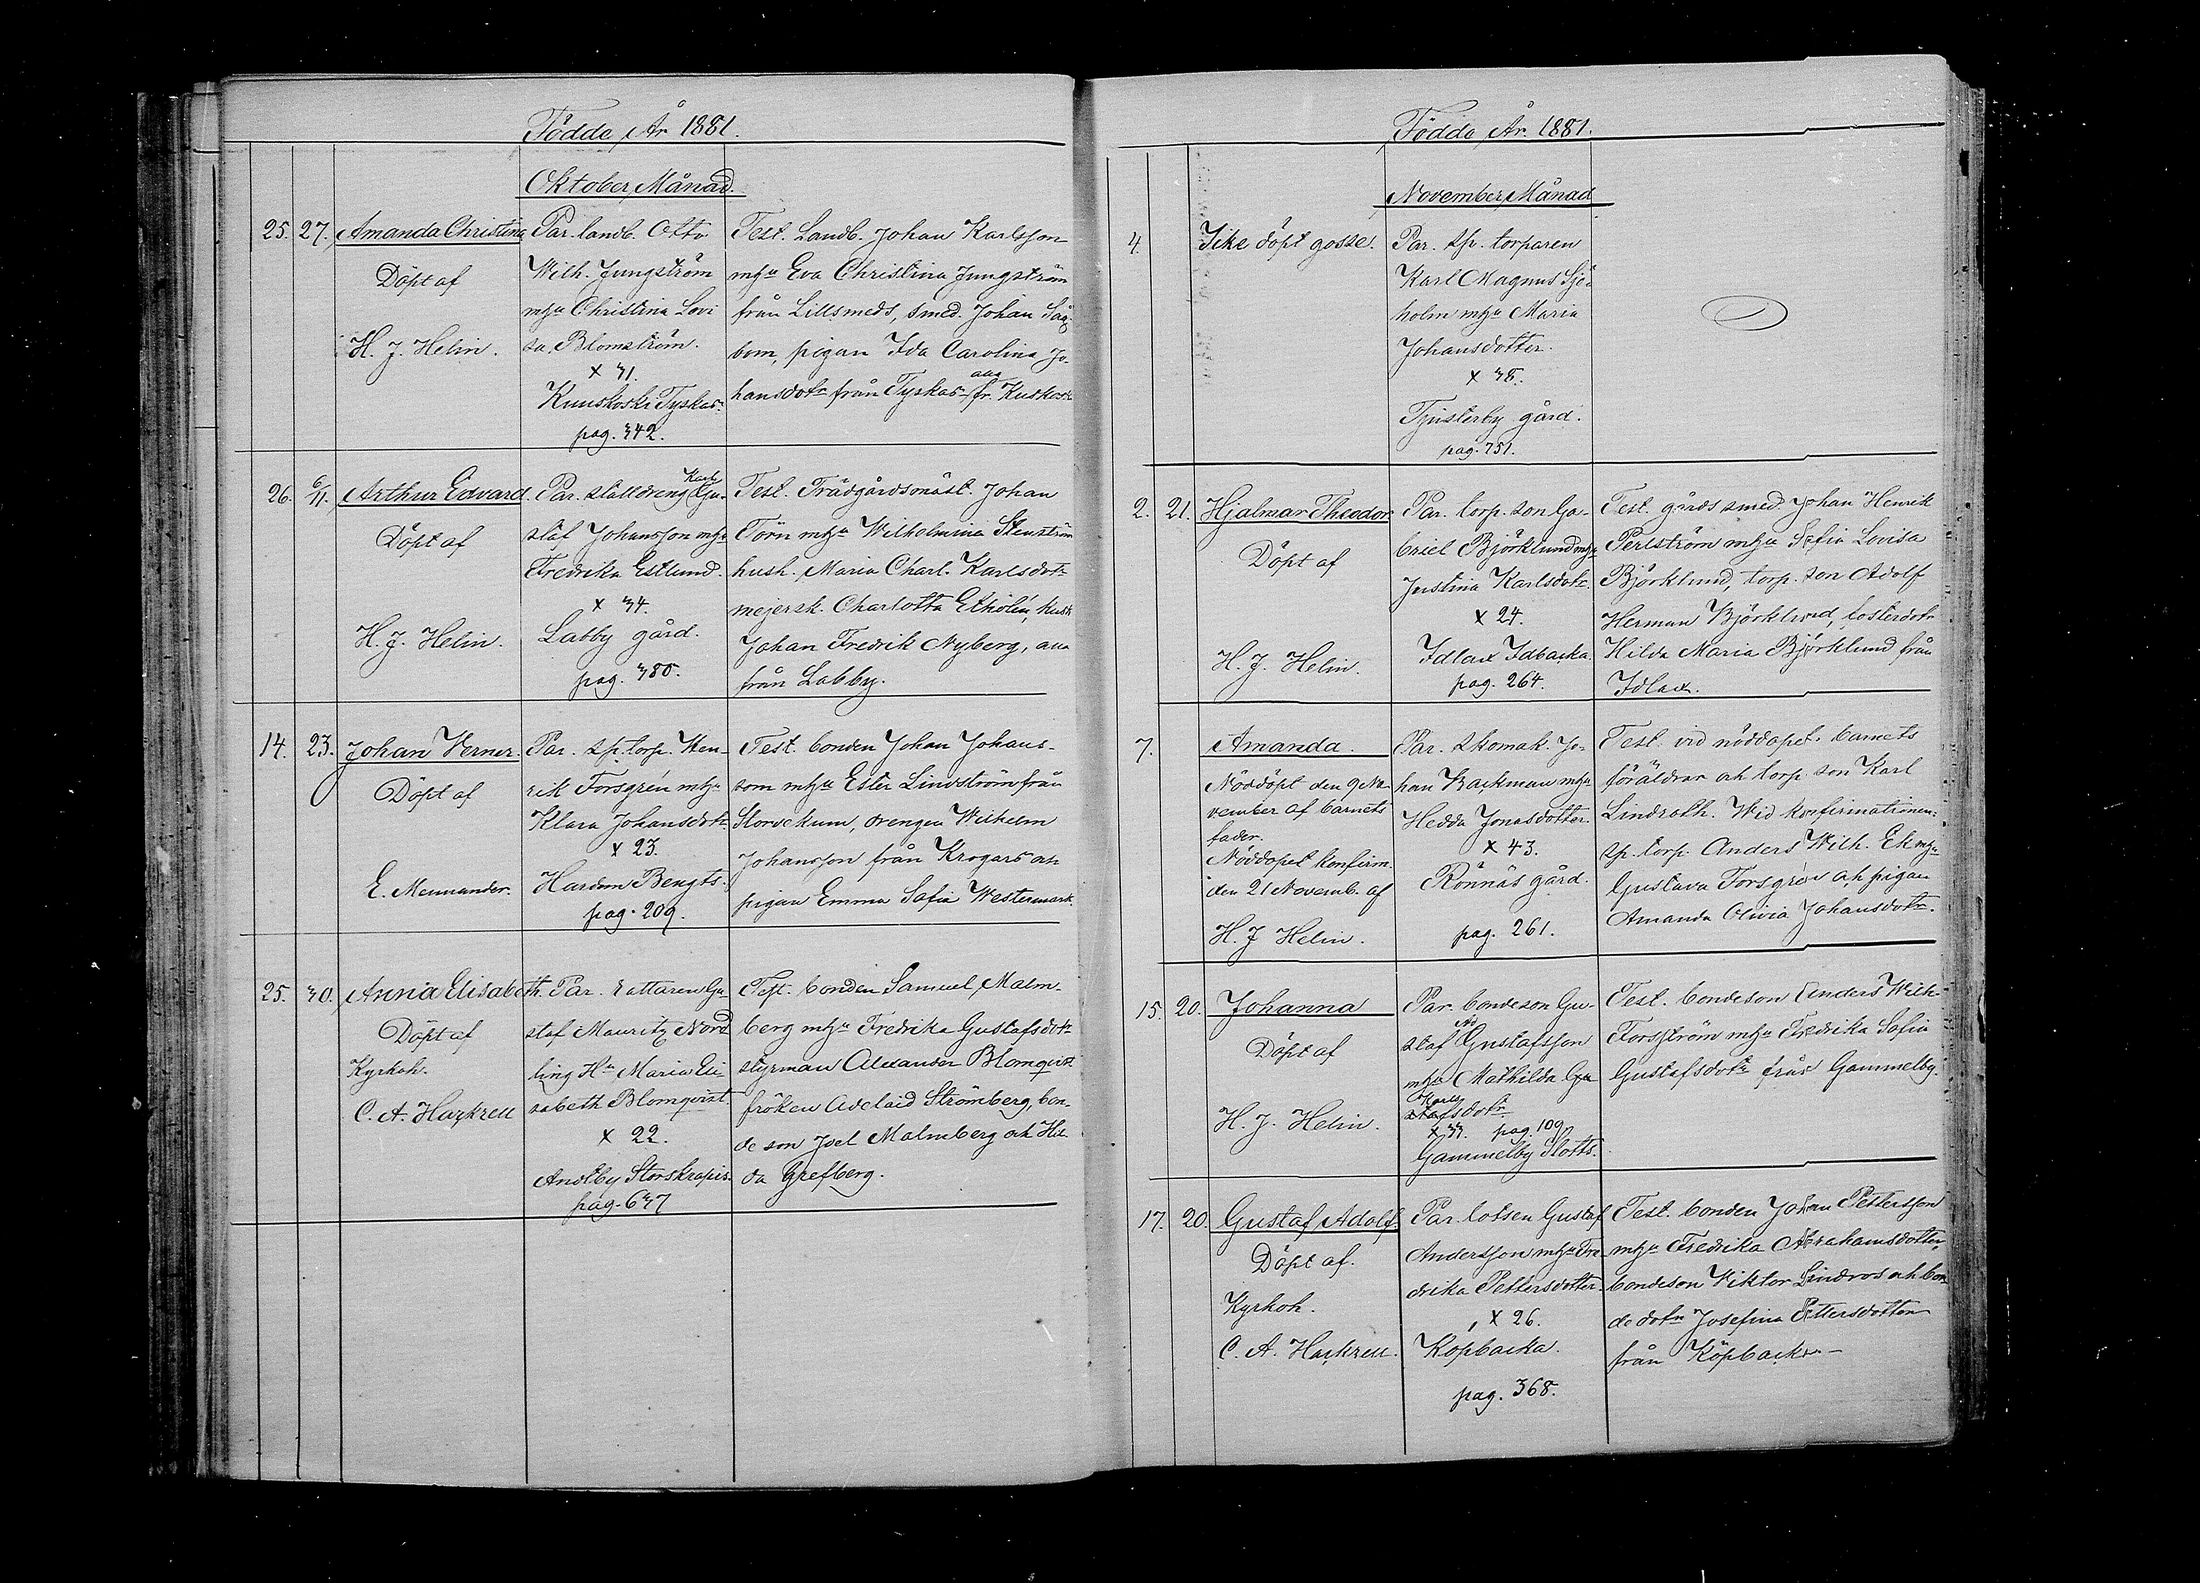 Födde År 1881.
Oktober Månad.
25. 27. Amanda Christina
Döpt af
H. J. Helin.
Par. landb. Otto
Wilh. Jungström
mhu Christina Lovi
sa Blomström.
x 31.
Kuuskoski Tyskas
pag. 342.
Test. Landb. Johan Karlsson
mhu Eva Christina Jungström
från Lillsmeds, smed. Johan Säg-
bom, pigan Ida Carolina Jo-
hansdotr från Tyskas fr. Kuskoski
26. 6/11. Arthur Edvard
Döpt af
H. J. Helin.
Karl
Par. stalldreng Gu-
staf Johansson mhu
Fredrika Estlund.
x 34.
Labby gård.
pag. 380.
Test. Trädgårdsmäst. Johan
Törn mhu Wilhelmina Stenström
hush. Maria Charl. Karlsdotr
mejersk. Charlotta Ekholm, kusk
Johan Fredrik Nyberg, alla
från Labby.
14. 23. Johan Verner.
Döpt af
E. Mennander.
Par. sp. torp. Hen-
rik Forsgrén mhu
Klara Johansdotr
x 23.
Hardom Bengts.
pag. 209.
Test. bonden Johan Johans-
som mhu Ester Lindström från
Storvekum, drengen Wilhelm
Johansson från Krogars ah
pigan Emma Sofia Westermark.
25. 30. Anna Elisabeth.
Döpt af
Kyrkoh.
C. A. Harkrell
Par. Rättaren Gu-
staf Mauritz Nord
ling Hu Maria Eli
sabeth Blomqvist.
x 22.
Andlby Storskrapis.
pag. 637
Test. bonden Samuel Malm-
berg mhu Fredrika Gustafsdotr
styrman Alexander Blomqvist
fröken Adelaid Strömberg, bon-
de son Joel Malmberg och Hil
da Grefberg.
Födde År 1881.
November Månad
4. Icke döpt gosse.
Par. sp. torparen
Karl Magnus Sjö-
holm mhu Maria
Johansdotter.
x 38.
Tjusterby gård.
pag. 751.
2. 21. Hjalmar Theodor
Döpt af
H. J. Helin.
Par. torp. son Ga-
briel Björklund mhu
Justina Karlsdotr.
x 24.
Idlax Idbacka.
pag. 264.
Test. gårds smed. Johan Henrik
Perlström mhu Sofia Lovisa
Björklund, torp. son Adolf
Herman Björklund, fosterdotr
Hilda Maria Björklund från
Idlax.
7. Amanda.
Nöddöpt den 9 No
vember af barnets
fader.
Nöddopet konfirm.
den 21 Novemb. af
H. J Helin.
Par. skomak. Jo-
han Backman mhu
Hedda Jonasdotter.
x 43.
Rönnäs gård.
pag. 261.
Test. vid nöddopet: barnets
föräldrar ah torp. son Karl
Lindroth. Wid konfirmationen:
sp. torp. Anders Wilh. Ek mhu
Gustava Forsgrén ah pigan
Amanda Olivia Johansdotr.
15. 20. Johanna
Döpt af
H. J. Helin.
Par. bondeson Gu-
staf Gustafsson
mhu Mathilda Gu
Karls
stafsdotr
x 33. pag. 109
Gammelby Slotts.
Test. bondeson Anders Wilh.
Forsström mhu Fredrika Sofia
Gustafsdotr från Gammelby.
17. 20. Gustaf Adolf.
Döpt af.
Kyrkoh.
C. A. Harkrell.
Par. lotsen Gustaf
Andersson mhu Fre-
drika Pettersdotter.
x 26.
Köpbacka.
pag. 368.
Test. bonden Johan Pettersson
mhu Fredrika Abrahamsdotter,
bondeson Viktor Lindros och bon
de dotr Josefina Pettersdotter
från Köpbacka.